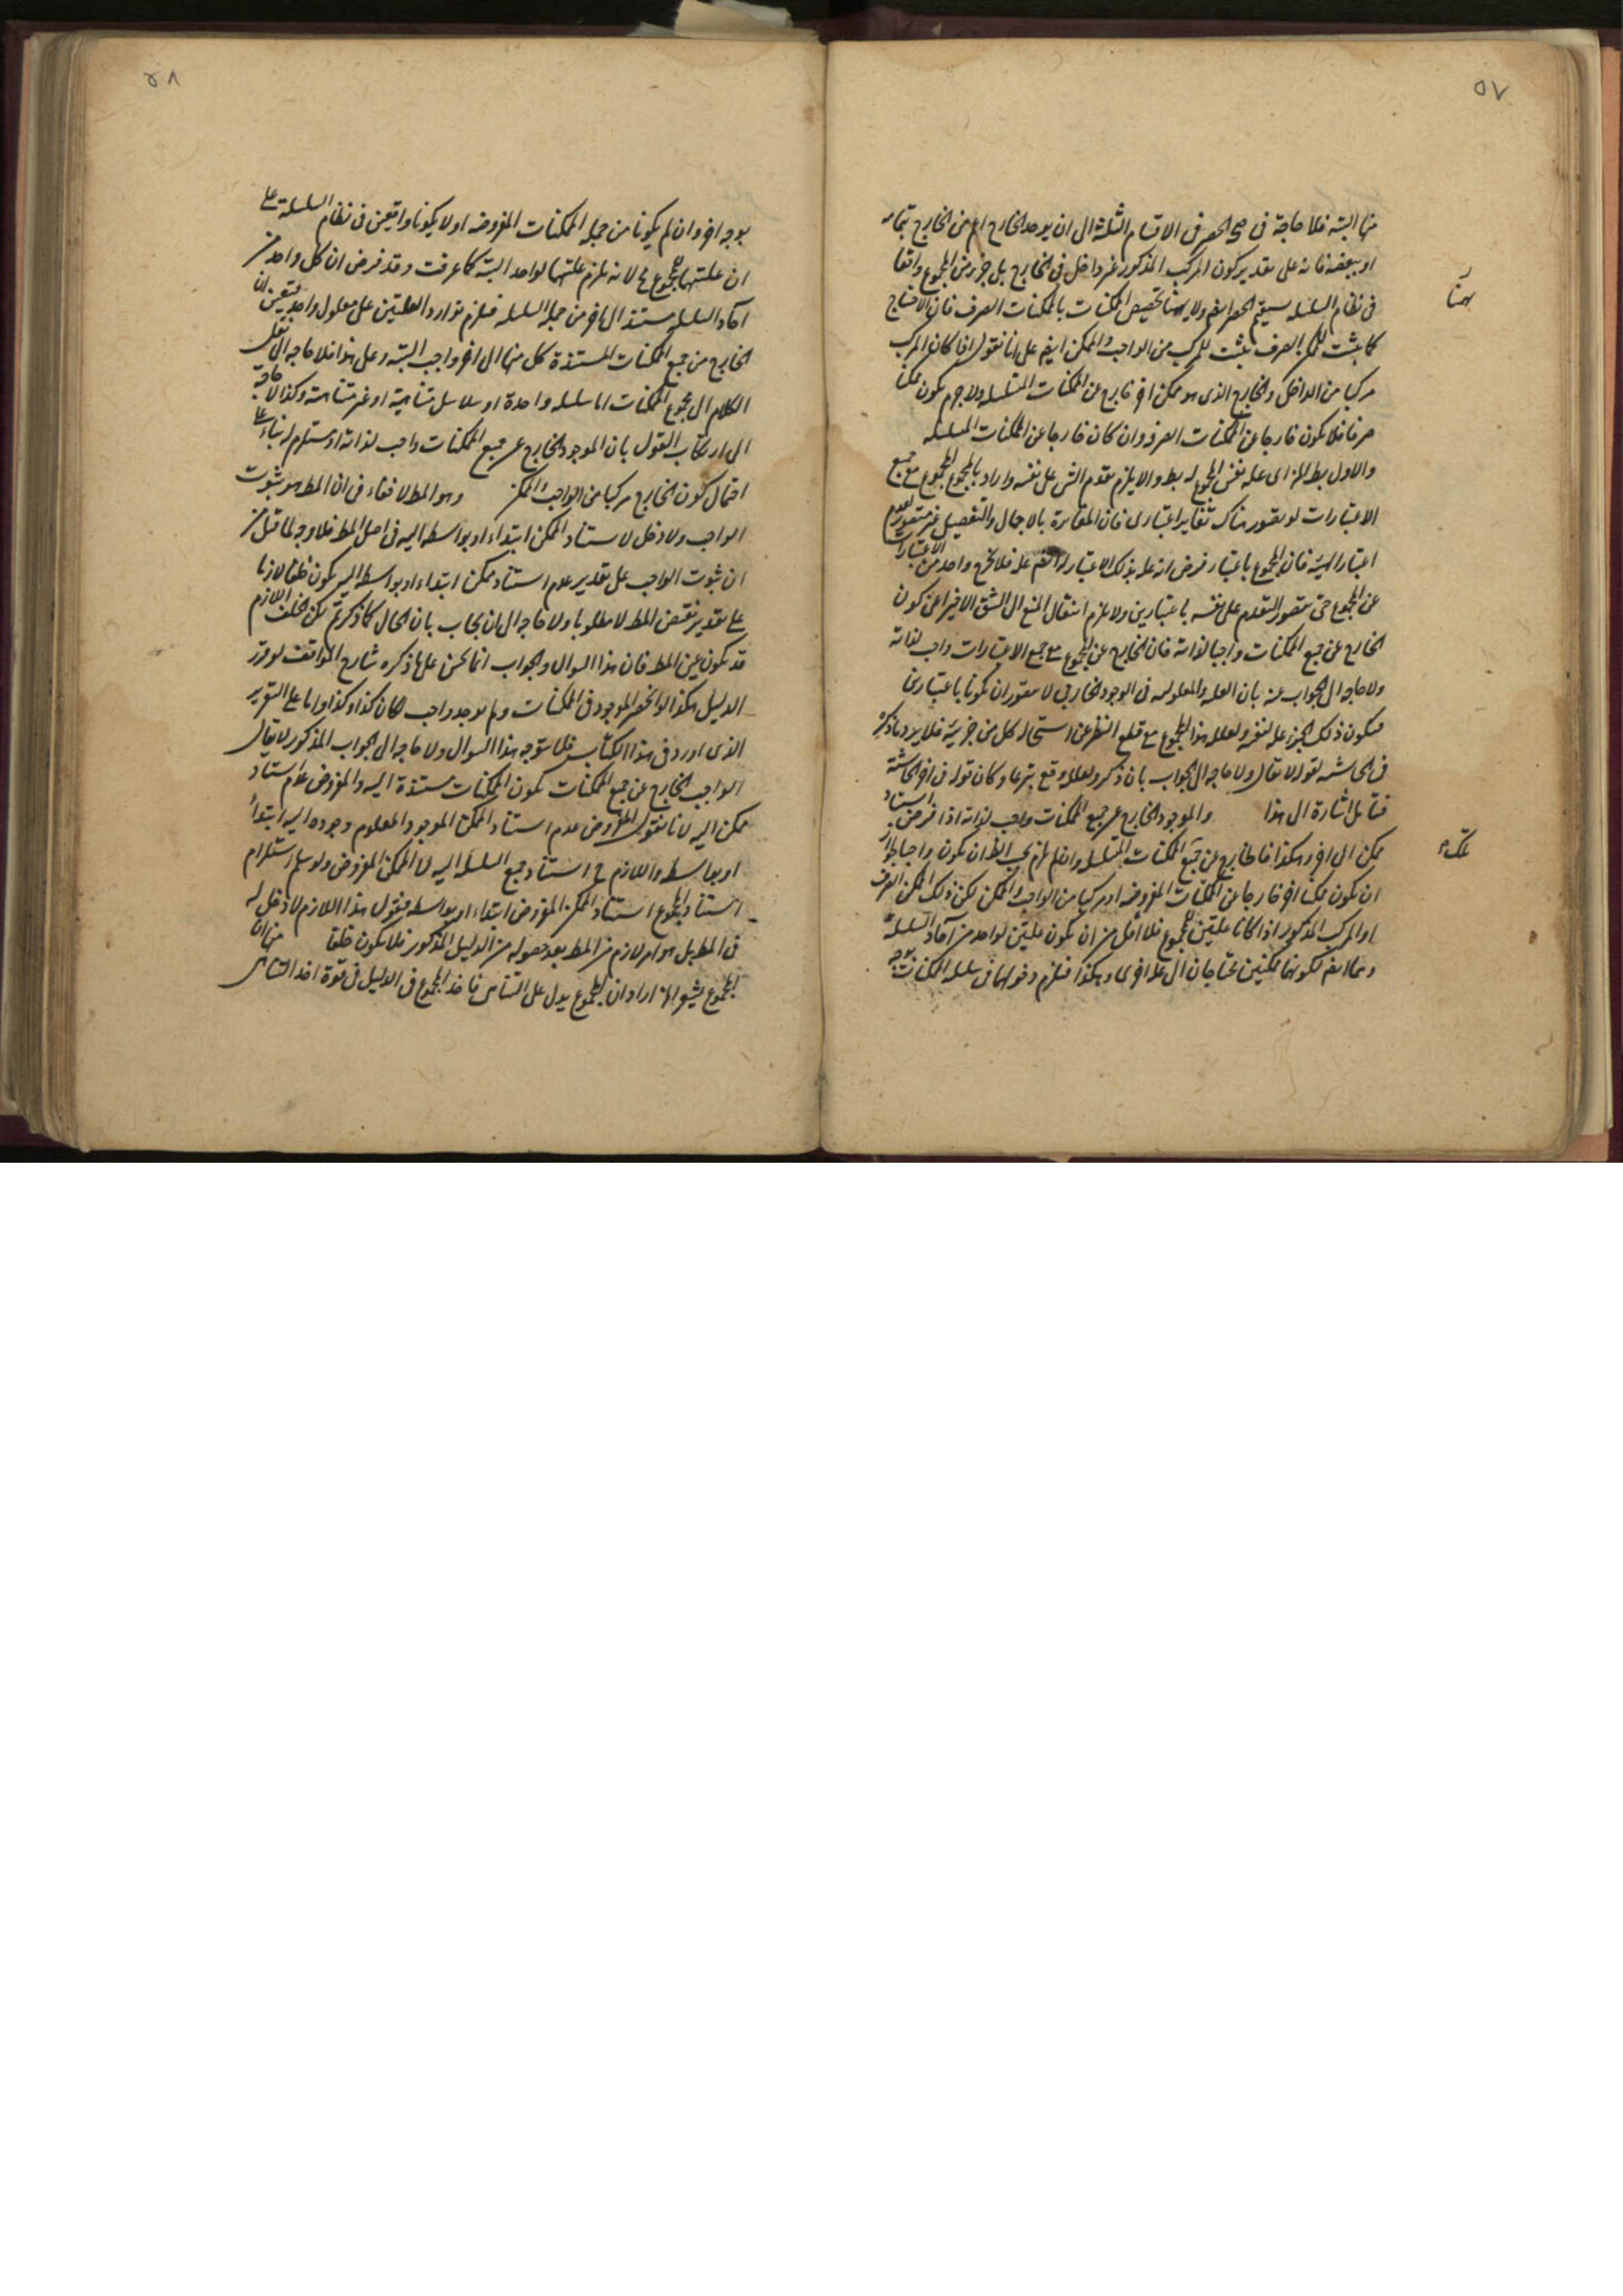 ٥٧
منها البتة فلا حاجة فى صحة الحصر فى الاقسام الثلثة الى ان يوخذ الخارج اعم من الخارج بتمامه
او ببعضه فانه على تقدير كون المركب المذكور غير داخل فى الخارج بل جزء من المجموع واقعا
فى نظام السلسلة سيقيم الحصر ايضا ولا تخصيص الممكنات بالممكنات الصرف فان الاحتياج
كما يثبت للممكن الصرف يثبت للمركب من الواجب والممكن ايضا على انا نقول اذا كان المركب
مركبا من الداخل والخارج الذى هو ممكن اخر خارج عن الممكنات المتسلسله ولا جرم يكون ممكنا
صرفا فلا يكون خارجا عن الممكنات الصرف وان كان خارجا عن الممكنات المتسلسله
والاول بط اى علة نفس المجموع له بط والا يلزم تقدم الشى على نفسه واراد بالمجموع المجموع مع جميع
الاعتبارات لو يتصور هناك تغاير اعتبارى فان المغايرة بالاجمال والتفصيل غير متصور لعدم
اعتبار الهيئة فان المجموع باعتبار فرض انه علة بذلك الاعتبار فلا يخرج واحد من الاعتبارات
عن المجموع حتى يتصور التقدم على نفسه باعتبارين ولا يلزم انتقال المنع الى الشق الاخير اعنى كون
الخارج عن جميع الممكنات واجبا لذاته فان الخارج عن المجموع مع جميع الاعتبارات واجب لذاته
ولا حاجة الى الجواب عنه بان العلة والمعلولية فى الوجود الخارجى لا يتصور ان يكونا باعتبارين
فيكون ذلك الجزء علة لنفسه ولعلله هذا المجموع مع قطع النظر عن استحالة كل من جزئيه فلا يرد ما ذكره
فى الحاشية لقوله لا يقال ولا حاجة الى الجواب بان ذكر ولعلله وقع تبرعا وكان قوله فى اخر الحاشية
فتأمل اشارة الى هذا والموجود الخارج عن جميع الممكنات واجب لذاته اذا فرض استناد
ممكن الى اخر وهكذا فالخارج عن جميع الممكنات المتسلسله وان لم يجب الظ ان يكون واجبا لجواز
ان يكون ممكنا اخر خارجا عن الممكنات المفروضه او مركبا من الواجب والممكن لكن ذلك الممكن الصرف
او المركب المذكور اذا كانا علتين للمجموع فلا اقل من ان يكون علتين لواحد من آحاد السلسلة
وهما ايضا لكونهما ممكنين يحتاجان الى علة اخرى وهكذا فيلزم دخولهما فى سلسلة الممكنات بوجه
٥٨
بوجه اخر وان لم يكونا من جملة الممكنات المفروضه او لا يكونا واقعين فى نظام السلسلة على
ان علتهما للمجموع لانه يلزم علتهما لواحد البتة كما عرفت وقد فرض ان كل واحد من
آحاد السلسلة مستند الى اخر من جملة السلسله فيلزم توارد العلتين على معلول واحد فتعين ان
الخارج من جميع الممكنات المستندة كل منها الى اخر واجب البتة وعلى هذا فلا حاجة الى نقل
الكلام الى مجموع الممكنات اما سلسله واحدة او سلاسل متناهية او غير متناهية وكذا لا حاجة
الى ارتكاب القول بان الموجود الخارج عن جميع الممكنات واجب لذاته او مستلزم له بناء على
احتمال كون الخارج مركبا من الواجب والممكن وهو المط لا خفاء فى ان المط هو ثبوت
الواجب ولا دخل لاستناد الممكن ابتداء او بواسطة اليه فى اصل المط فلا وجه لما قيل من
ان ثبوت الواجب على تقدير عدم استناد ممكن ابتداء او بواسطة اليه يكون خلفا لازما
على تقدير نقيض المط لا مطلوبا ولا حاجة الى ان يجاب بان الحال كما ذكرتم لكن الخلف اللازم
قد يكون عين المط فان هذا السوال والجواب انما يحسن على ما ذكره شارح المواقف لو قرر
الدليل هكذا لو انحصر الموجود فى الممكنات ولم يوجد واجب لكان كذا وكذا واما على التقرير
الذى اورد فى هذا الكتاب فلا يتوجه هذا السوال ولا حاجة الى الجواب المذكور لا يقال
الواجب الخارج عن جميع الممكنات يكون الممكنات مستندة اليه والمفروض عدم استناد
ممكن اليه لانا نقول المفروض عدم استناد الممكن الموجود المعلوم وجوده اليه ابتداءً
او بواسطه واللازم ح استناد جميع السلسلة اليه لا الممكن المفروض ولو سلم استلزام
استناد المجموع استناد الممكن المفروض ابتداء او بواسطه فنقول هذا اللازم لا دخل له
فى المط بل هو امر لازم من المط بعد حصوله من الدليل المذكور فلا يكون خلفا منها ان
المجموع يشعر اراد ان المجموع يدل على التناهى فاخذ المجموع فى الدليل فى قوة اخذ التناهى